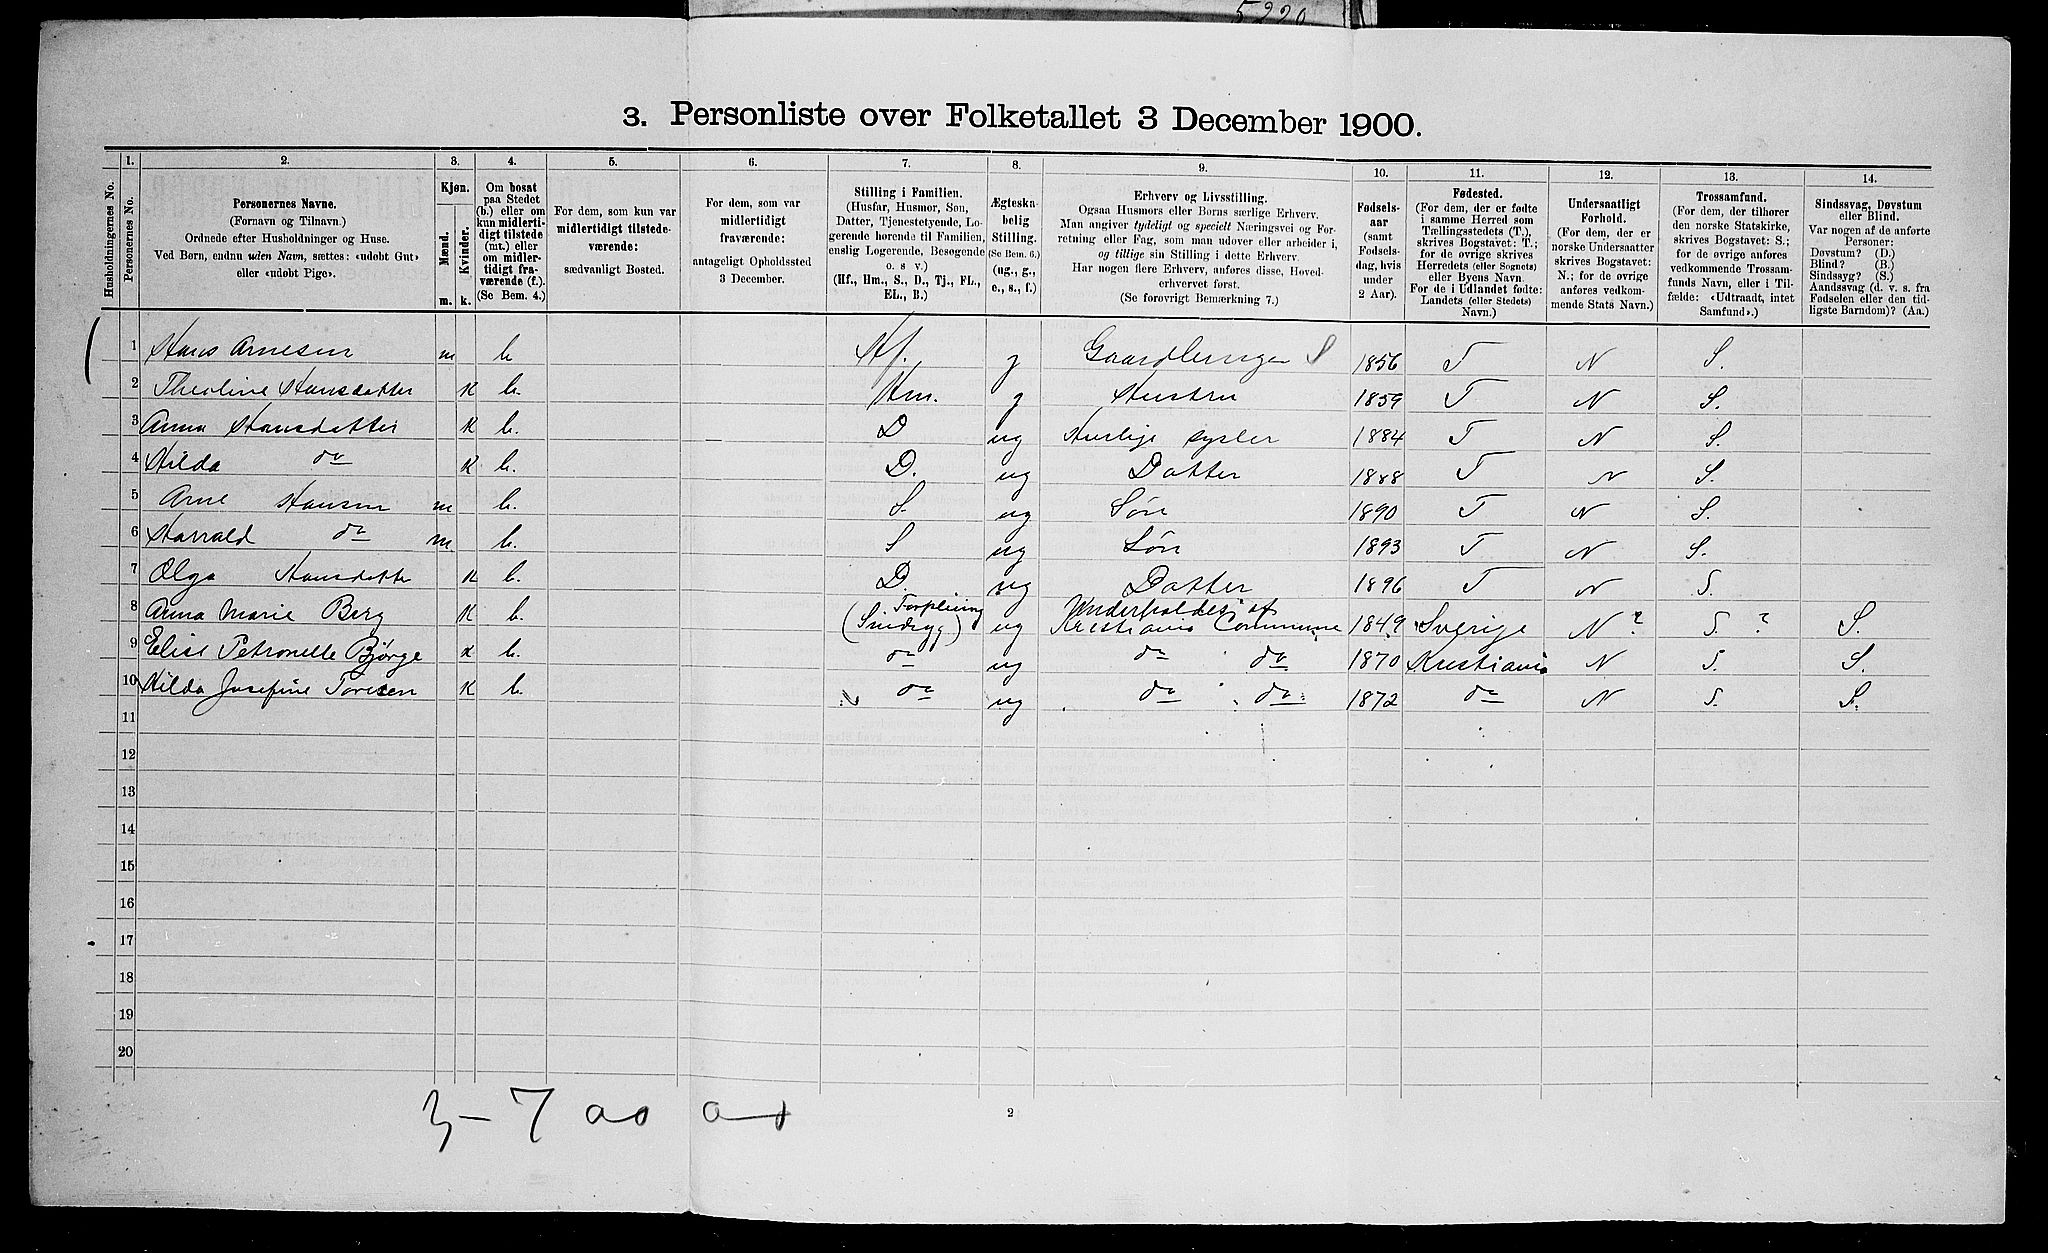 5220
3. Personliste over Folketallet 3 December 1900.
1. 2. 3. 4. 5. 6. 7. 8. 9. 10. 11. 12. 13. 14.
Husholdningernes No.
Personernes No.
Personernes Navne.
(Fornavn og Tilnavn.)
Ordnede efter Husholdninger og Huse.
Ved Børn, endnu uden Navn, sættes: «udøbt Gut»
eller «udøbt Pige».
Kjøn.
Mænd.
Kvinder.
m. k.
Om bosat
paa Stedet
(b.) eller om
kun midlerti-
digt tilstede
(mt.) eller
om midler-
tidigt fra-
værende (f.).
(Se Bem. 4.)
For dem, som kun var
midlertidigt tilstede-
værende:
sædvanligt Bosted.
For dem, som var
midlertidigt
fraværende:
antageligt Opholdssted
3 December.
Stilling i Familien.
(Husfar, Husmor, Søn,
Datter, Tjenestetyende, Lo-
gerende hørende til Familien,
enslig Logerende, Besøgende
o. s v.)
(Hf., Hm., S., D., Tj., FL.,
EL., B.)
Ægteska-
belig
Stilling.
(Se Bem. 6.)
(ug., g.,
e., s., f.)
Erhverv og Livsstilling.
Ogsaa Husmors eller Børns særlige Erhverv.
Man angiver tydeligt og specielt Næringsvei og For-
retning eller Fag, som man udover eller arbeider i,
og tillige sin Stilling i dette Erhverv.
Har nogen flere Erhverv, anføres disse, Hoved-
erhvervet først.
(Se forøvrigt Bemærkning 7.)
Fødsels-
aar
(samt
Fødsels-
dag, hvis
under
2 Aar).
Fødested.
(For dem, der er fødte
i samme Herred som
Tællingsstedets (T.),
skrives Bogstavet: T.;
for de øvrige skrives
Herredets (eller Sognets)
eller Byens Navn.
For de i Udlandet fødte:
Landets (eller Stedets)
Navn.)
Undersaatligt
Forhold.
(For dem, der er
norske Undersaatter
skrives Bogstavet:
N.; for de øvrige
anføres vedkom-
mende Stats Navn.)
Trossamfund.
(For dem, der tilhører
den norske Statskirke,
skrives Bogstavet: S.;
for de øvrige anføres
vedkommende Trossam-
funds Navn, eller i Til-
fælde: «Udtraadt, intet
Samfund».)
Sindssvag, Døvstum
eller Blind.
Var nogen af de anførte
Personer:
Døvstum? (D.)
Blind? (B.)
Sindssyg? (S.)
Aandssvag (d. v. s. fra
Fødselen eller den tid-
ligste Barndom)? (Aa.)
1 Hans Arnesen m b. Hf. g Gaardbruger S 1856 T N S.
2 Theoline Hansdatter K b. Hm. g Hustru 1859 T N S.
3 Anna Hansdatter K b. D ug Huslige sysler 1884 T N S.
4 Hilda do K b. D. ug Datter 1888 T N S.
5 Arne Hansen m b. S. ug Søn 1890 T N S.
6 Harrald do m b. S ug Søn 1893 T N S.
7 Olga Hansdatter K b. D. ug Datter 1896 T N S.
8 Anna Marie Berg K b. Forpleining (Sindsyg) ug Underholdes af Kristiania Commune 1849 Sverige N ? S. ? S.
9 Elise Petronelle Bjørge K b. do ug do do 1870 Kristiania N S. S.
10 Hilda Josefine Toresen K b. do ug do do 1872 do N S. S.
11
12
13
14
15
16
17
18
19
20
3 - 7
2